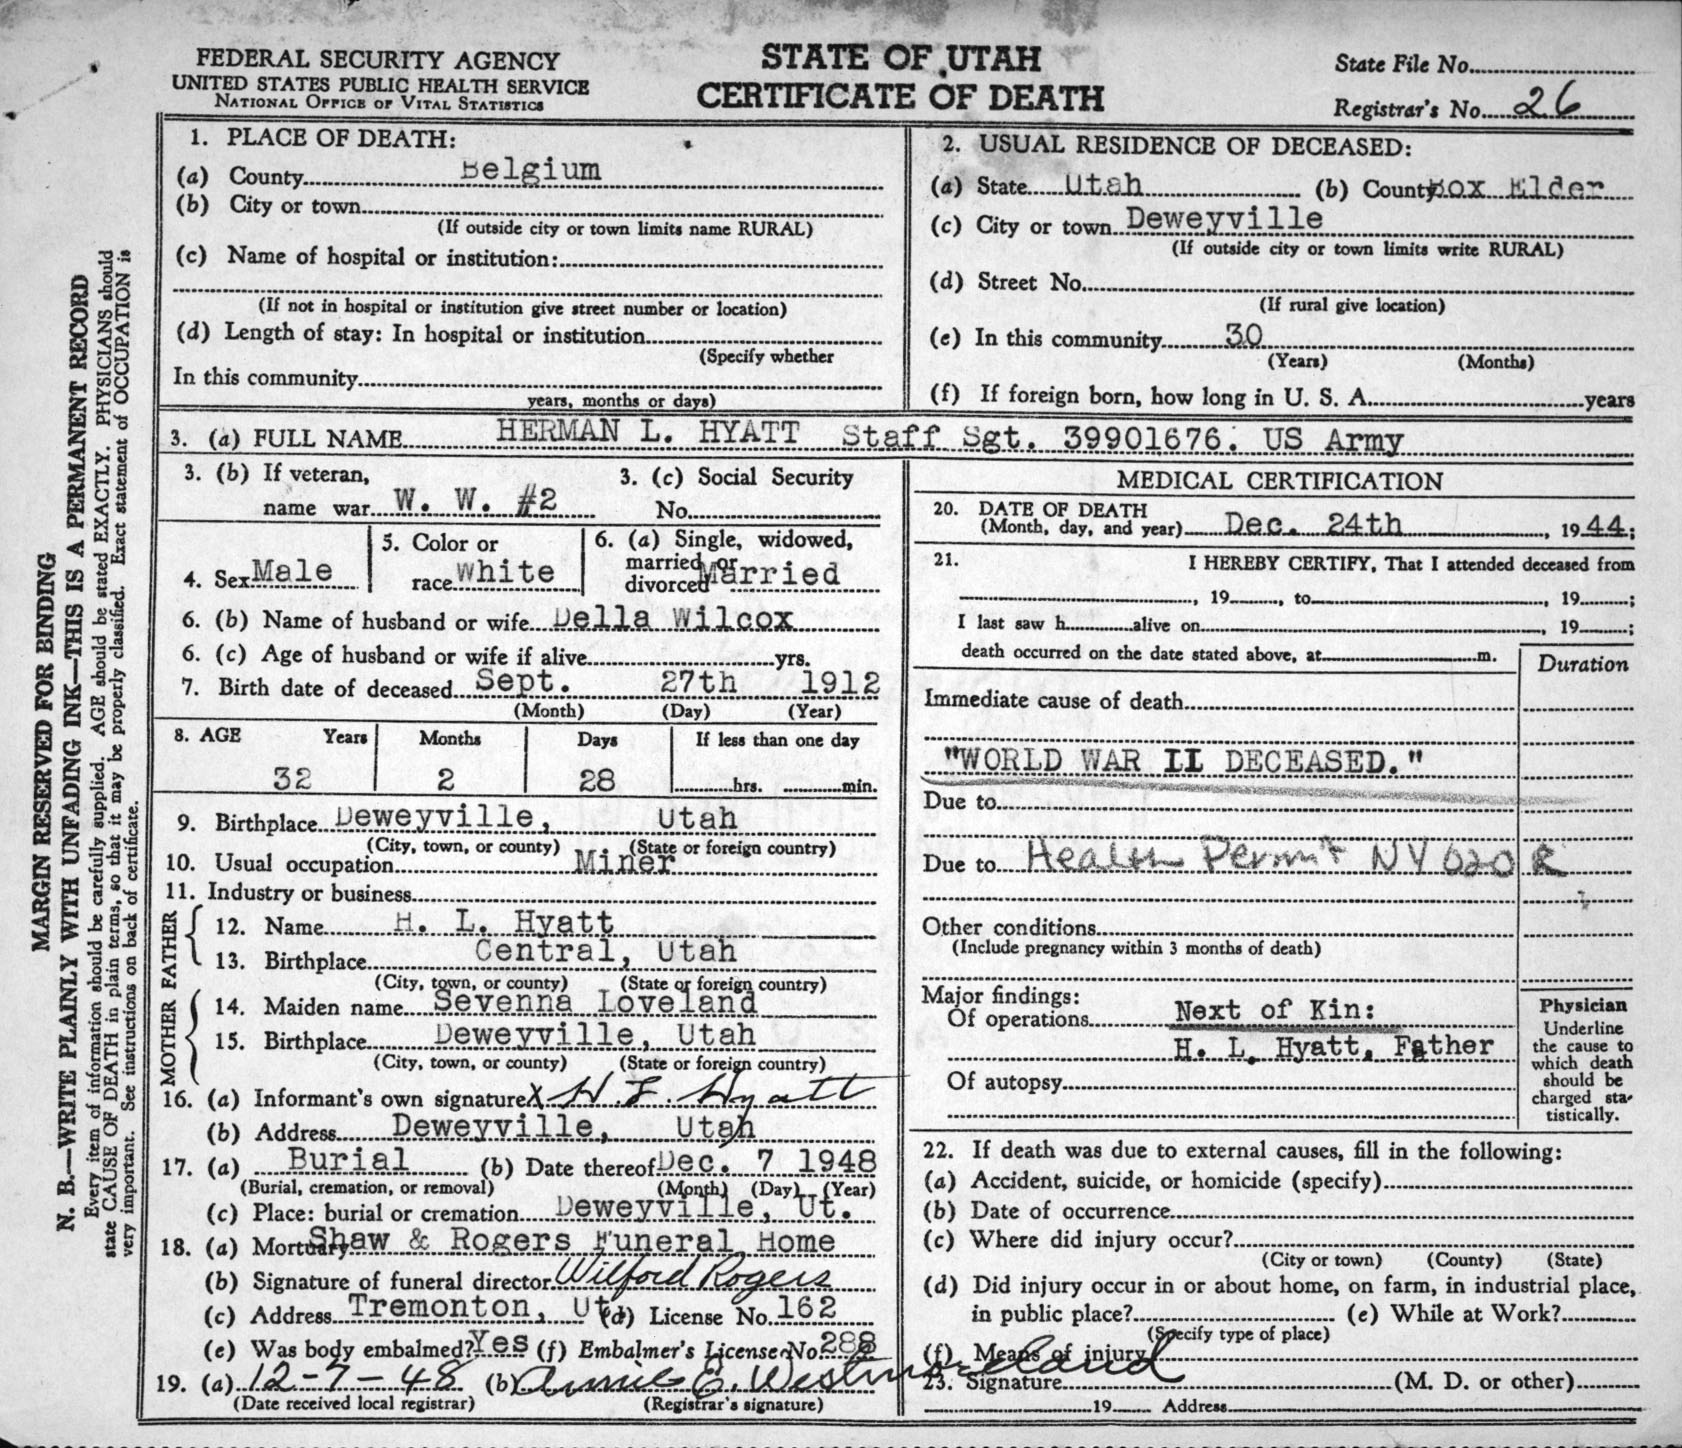 FEDERAL SECURITY AGENCY
UNITED STATES PUBLIC HEALTH SERVICE
NATIONAL OFFICE OF VITAL STATISTICS
STATE OF UTAH
CERTIFICATE OF DEATH
State File No.
Registrar's No. 26
MARGIN RESERVED FOR BINDING
N. B.—WRITE PLAINLY WITH UNFADING INK—THIS IS A PERMANENT RECORD
Every item of information should be carefully supplied. AGE should be stated EXACTLY. PHYSICIANS should
state CAUSE OF DEATH in plain terms, so that it may be properly classified. Exact statement of OCCUPATION is
very important. See instructions on back of certificate.
1. PLACE OF DEATH:
(a) County Belgium
(b) City or town
(If outside city or town limits name RURAL)
(c) Name of hospital or institution:
(If not in hospital or institution give street number or location)
(d) Length of stay: In hospital or institution
(Specify whether
In this community
years, months or days)
2. USUAL RESIDENCE OF DECEASED:
(a) State Utah (b) County Box Elder
(c) City or town Deweyville
(If outside city or town limits write RURAL)
(d) Street No.
(If rural give location)
(e) In this community 30
(Years) (Months)
(f) If foreign born, how long in U. S. A. years
3. (a) FULL NAME HERMAN L. HYATT Staff Sgt. 39901676. US Army
3. (b) If veteran,
name war W. W. #2
3. (c) Social Security
No.
4. Sex Male
5. Color or
race White
6. (a) Single, widowed,
married, or
divorced Married
6. (b) Name of husband or wife Della Wilcox
6. (c) Age of husband or wife if alive yrs.
7. Birth date of deceased Sept. 27th 1912
(Month) (Day) (Year)
8. AGE Years Months Days If less than one day
32 2 28 hrs. min.
9. Birthplace Deweyville, Utah
(City, town, or county) (State or foreign country)
10. Usual occupation Miner
11. Industry or business
FATHER
12. Name H. L. Hyatt
13. Birthplace Central, Utah
(City, town, or county) (State or foreign country)
MOTHER
14. Maiden name Sevenna Loveland
15. Birthplace Deweyville, Utah
(City, town, or county) (State or foreign country)
16. (a) Informant's own signature X H. L. Hyatt
(b) Address Deweyville, Utah
17. (a) Burial (b) Date thereof Dec. 7 1948
(Burial, cremation, or removal) (Month) (Day) (Year)
(c) Place: burial or cremation Deweyville, Ut.
18. (a) Mortuary Shaw & Rogers Funeral Home
(b) Signature of funeral director Wilford Rogers
(c) Address Tremonton, Ut. (d) License No. 162
(e) Was body embalmed? Yes (f) Embalmer's License No. 288
19. (a) 12-7-48 (b) Annie E. Westmoreland
(Date received local registrar) (Registrar's signature)
MEDICAL CERTIFICATION
20. DATE OF DEATH
(Month, day, and year) Dec. 24th, 1944;
21. I HEREBY CERTIFY, That I attended deceased from
, 19 , to , 19 ;
I last saw h alive on , 19 ;
death occurred on the date stated above, at m.
Duration
Immediate cause of death
"WORLD WAR II DECEASED."
Due to
Due to Health Permit NY 020 R
Other conditions
(Include pregnancy within 3 months of death)
Major findings:
Of operations Next of Kin:
H. L. Hyatt, Father
Of autopsy
Physician
Underline
the cause to
which death
should be
charged sta-
tistically.
22. If death was due to external causes, fill in the following:
(a) Accident, suicide, or homicide (specify)
(b) Date of occurrence
(c) Where did injury occur?
(City or town) (County) (State)
(d) Did injury occur in or about home, on farm, in industrial place,
in public place? (e) While at Work?
(Specify type of place)
(f) Means of injury
23. Signature (M. D. or other)
19 Address